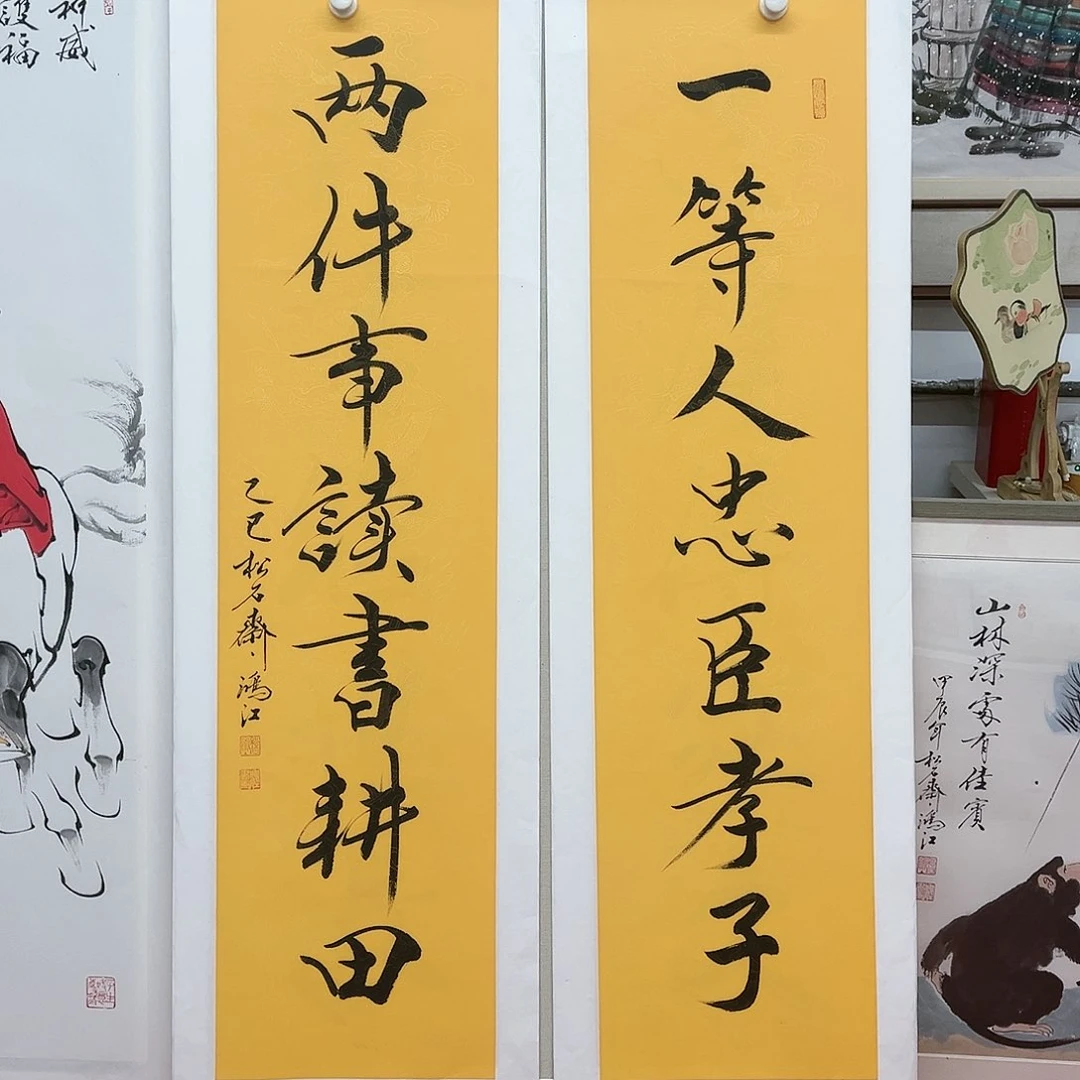 一等人忠臣孝子
两件事讀書耕田
乙巳松石齋鴻江
山林深處有佳賓
甲辰年松石齋鴻江
神威
護福